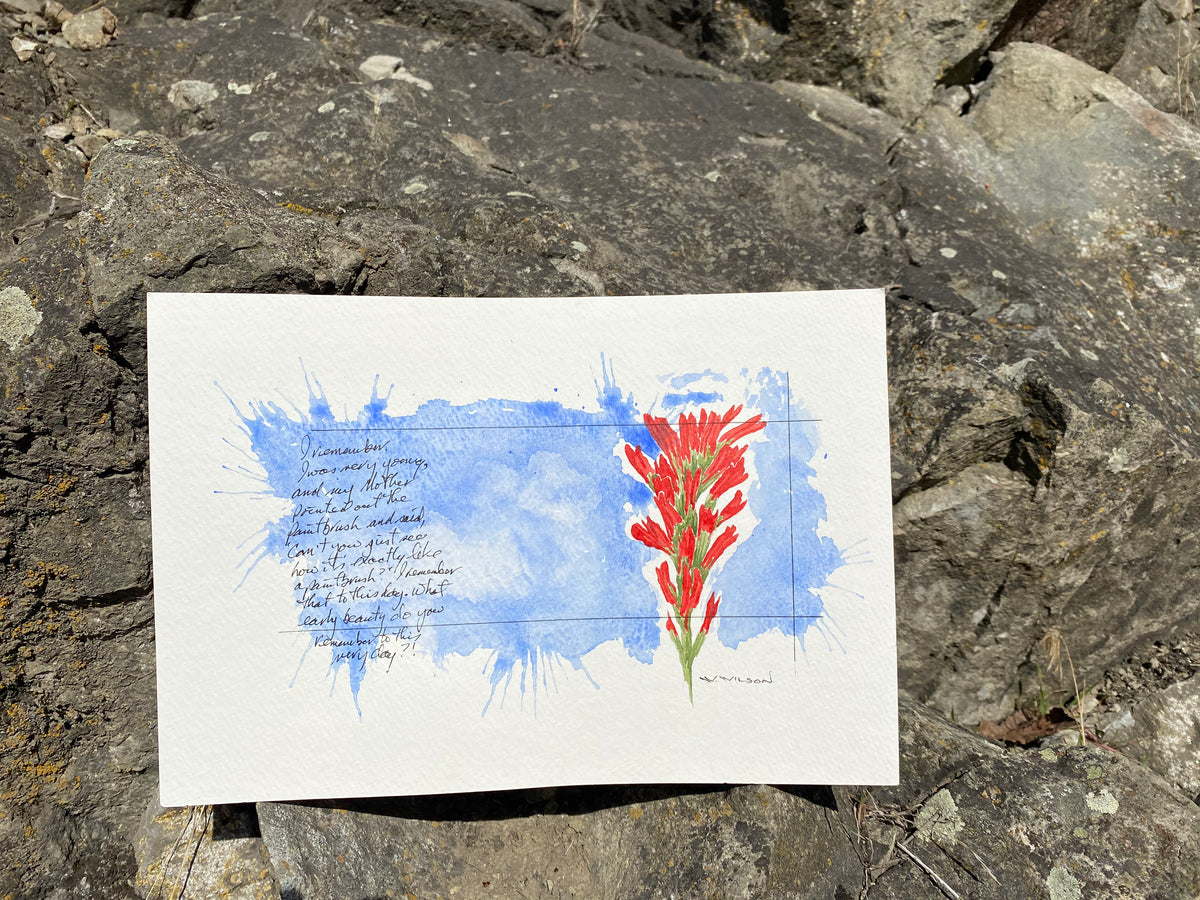 I remember.
I was very young,
and my Mother
pointed out the
Paintbrush and said,
"Can't you just see
how it's exactly like
a paintbrush?" I remember
that to this day. What
early beauty do you
remember to this
very day?!
W. WILSON